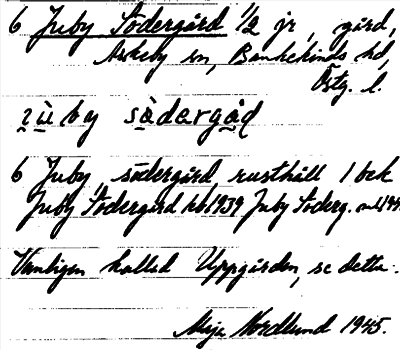 6 Juby Södergård 1/2 jr, gård,
Askeby sn, Bankekinds hd,
Östg. l.
ʒù by sàdergåd
6 Juby södergård rusthåll 1 bek
Juby Södergård hbl 1939 Juby Söderg.
Vanligen kallad Uppgården, se detta.
Maja Nordlund 1945.